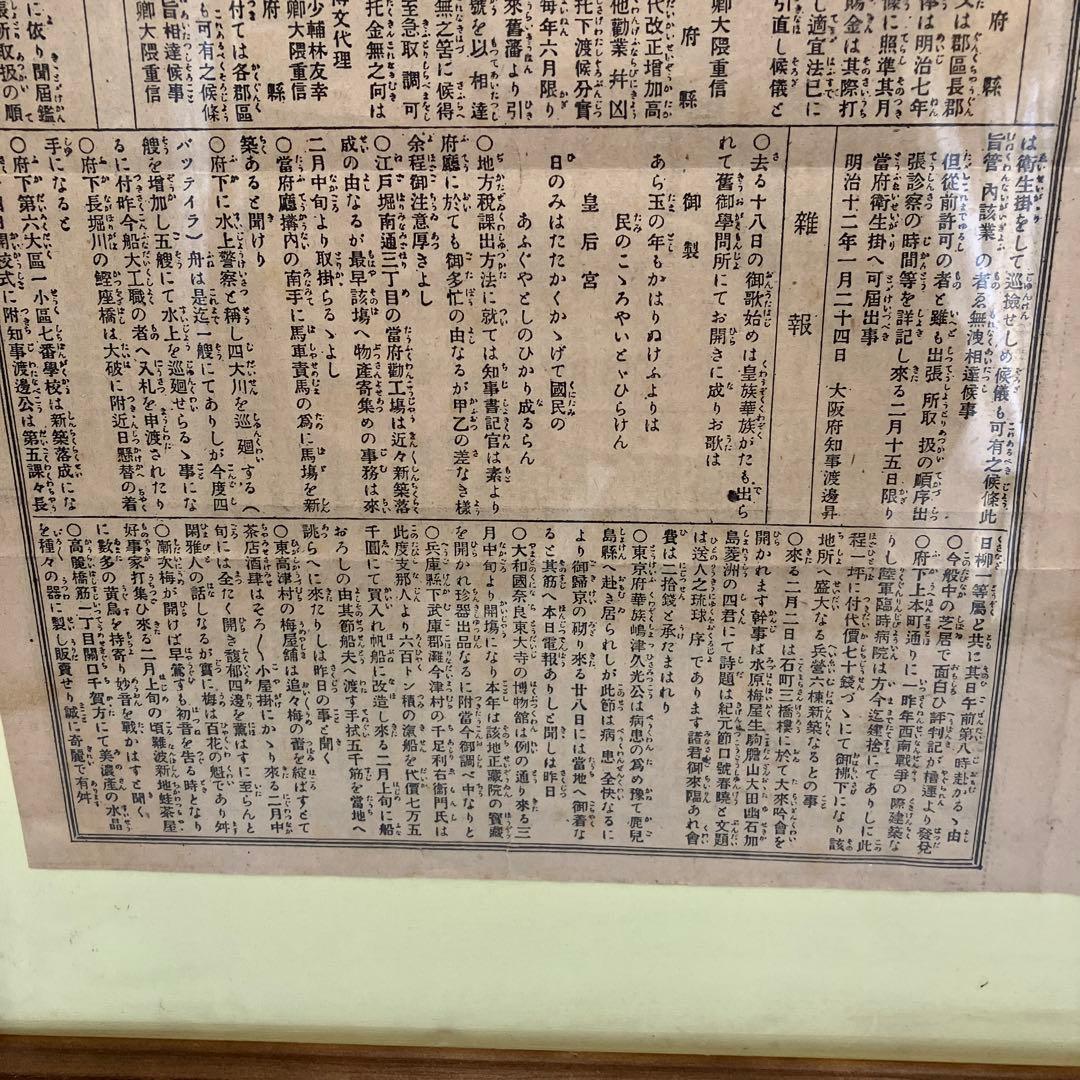 府縣
又は郡區長郡
体は明治七年
樣に照準其月
賜金は其際打
し適宜法已に
引直し候儀と
卿大隈重信
府縣
代改正增加高
他勸業并凶
托下渡候分實
每年六月限り
來舊藩より引
號を以相達
無之筈に候得
至急取調可
托金無之向は
博文代理
少輔林友幸
卿大隈重信
府縣
付ては各郡區
も可有之候條
旨相達候事
卿大隈重信
に依り聞屆鑑
張所取扱の順
は衛生掛をして巡撿せしめ候儀も可有之候條此
旨管內該業の者ゑ無洩相達候事
但從前許可の者と雖も出張所取扱の順序出
張診察の時間等を詳記し來る二月十五日限り
當府衛生掛へ可屆出事
明治十二年一月二十四日 大阪府知事渡邊昇
雜報
○去る十八日の御歌始めは皇族華族がたも出ら
れて舊御學問所にてお開きに成りお歌は
御製
あら玉の年もかはりぬけふよりは
民のこゝろやいとゞひらけん
皇后宮
日のみはたたかくかゝげて國民の
あふぐやとしのひかり成るらん
○地方税課出方法に就ては知事書記官は素より
府廳に於ても御多忙の由なるが甲乙の差なき様
余程御注意厚きよし
○江戸堀南通三丁目の當府勸工場は近々新築落
成の由なるが最早該塲へ物產寄集めの事務は來
二月中旬より取掛らるゝよし
○當府廳搆內の南手に馬車責馬の爲に馬塲を新
築あると聞けり
○府下に水上警察と稱し四大川を巡廻する(
バツテイラ)舟は是迄一艘にてありしが今度四
艘を增加し五艘にて水上を巡廻せらるゝ事にな
るに付昨今船大工職の者へ入札を申渡されたり
○府下長堀川の鰹座橋は大破に附近日懸替の着
手になると
○府下第六大區一小區七番學校は新築落成にな
日開校式に附知事渡邊公は第五課々長
日柳一等屬と共に其日午前第八時赴かるゝ由
○今般中の芝居で面白ひ評判記が櫓連より發兌
○府下上本町通りに一昨年西南戰爭の際建築な
りし陸軍臨時病院は方今迄建捨にてありしに此
程一坪に付代價七十錢づゝにて御拂下になり該
地所へ盛大なる兵營六棟新築なるとの事
○來る二月二日は石町三橋樓に於て大來吟會を
開かれます幹事は水原梅屋生駒膽山大田幽石加
島菱洲の四君にて詩題は紀元節口號春曉と文題
は送人之琉球序であります諸君御來臨あれ會
費は二拾錢と承たまはり
○東京府華族嶋津久光公は病患の爲め豫て鹿兒
島縣へ赴き居られしが此節は病患全快なるに
より御歸京の砌り來る廿八日には當地へ御着な
ると其筋へ本日電報ありしと聞しは昨日
○大和國奈良東大寺の博物館は例の通り來る三
月中旬より開塲になり本年は該地正藏院の寶藏
を開かれ珍器出品なるに附當今御調べ中なりと
○兵庫縣下武庫郡灘今津村の千足利右衛門氏は
此度支那人より六百トン積の滊船を代價七万五
千圓にて買入れ帆船に改造し來る二月上旬に船
おろしの由其節船夫へ渡す手拭五千筋を當地へ
誂らへに來たりしは昨日の事と聞く
○東高津村の梅屋舖は追々梅の蕾を綻ばすとて
茶店酒肆はそろ〳〵小屋掛にかゝり來る二月中
旬には全たく開き馥郁四邊を薰はすに至らんと
閑雅人の話しなるが實に梅は百花の魁であり舛
○漸次梅が開けば早鶯も初音を告る時となり
好事家打集ひ來る二月上旬の頃難波新地蛙茶屋
に數多の黃鳥を持寄り妙音を戰かはすと聞く
○高麗橋筋一丁目關口千賀方にて美濃產の水晶
を種々の器に製し販賣せり誠に奇麗で有舛